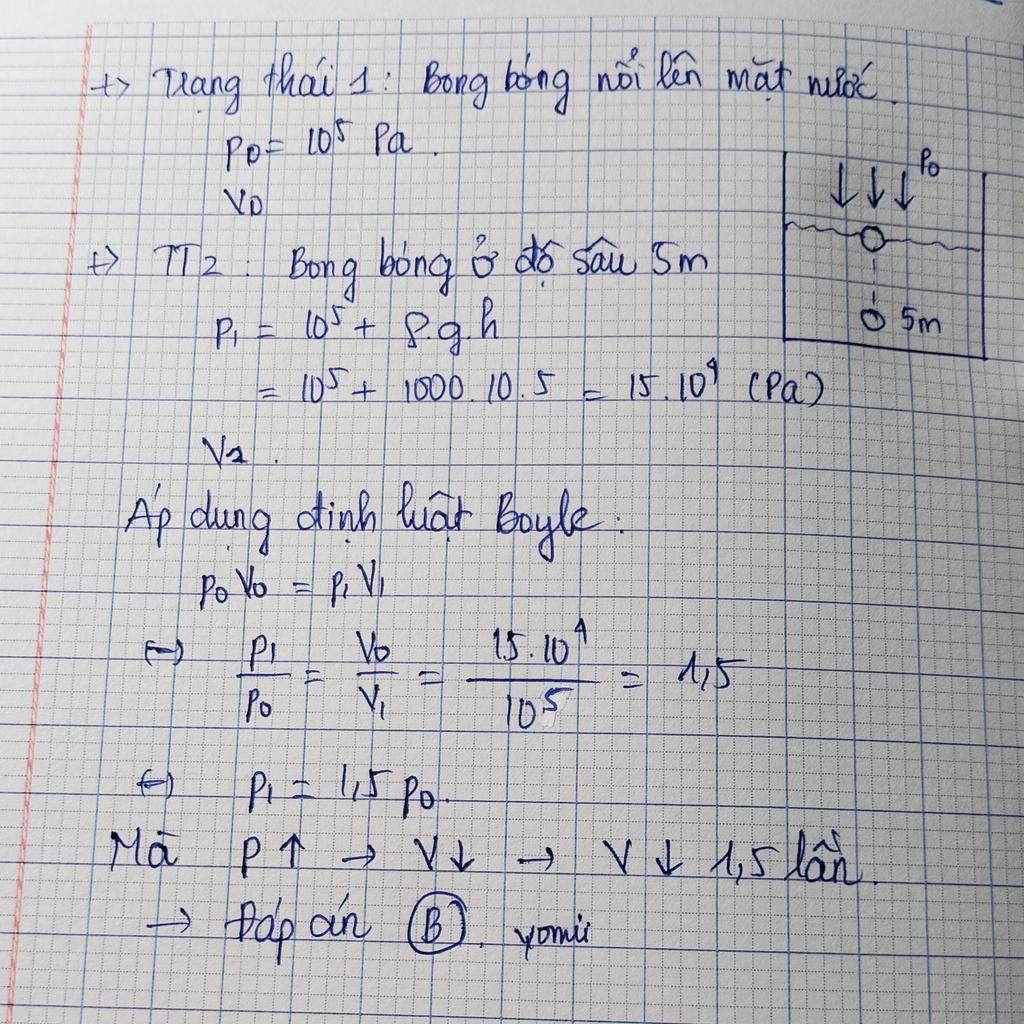 +> Trạng thái 1: Bong bóng nổi lên mặt nước.
P0 = 10⁵ Pa.
V0
P0
+> TT2: Bong bóng ở độ sâu 5m
5m
P1 = 10⁵ + ρ.g.h
= 10⁵ + 1000.10.5 = 15.10⁴ (Pa)
V2.
Áp dụng định luật Boyle:
P0V0 = P1V1
<-> P1/P0 = V0/V1 = 15.10⁴/10⁵ = 1,5
<-> P1 = 1,5 P0.
Mà P↑ → V↓ → V↓ 1,5 lần.
→ Đáp án B. yomii